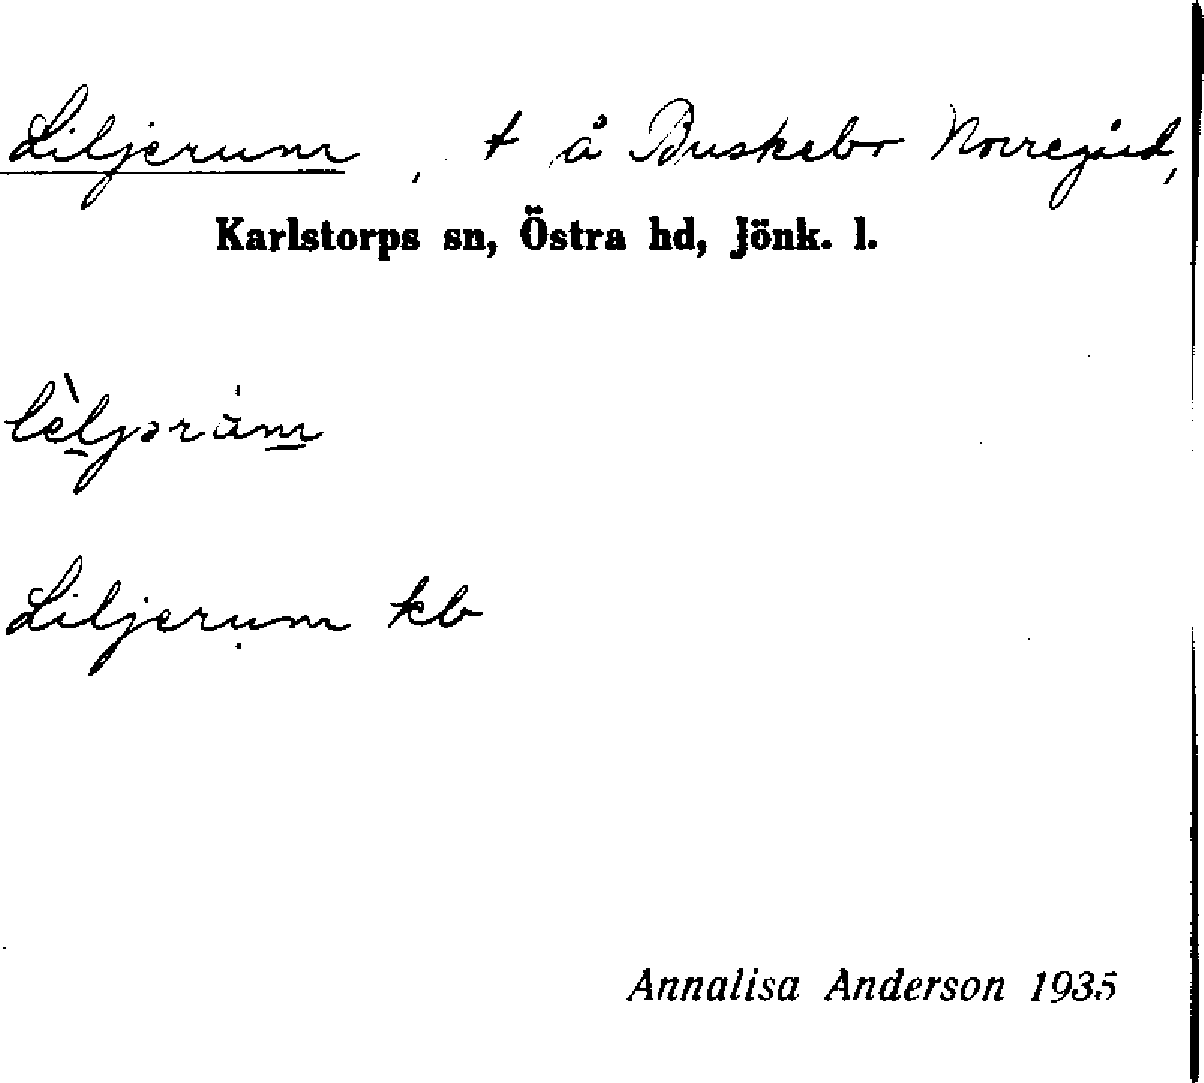 Liljerum, t å Buskebo Norregård,
Karlstorps sn, Östra hd, Jönk. l.
Liljerum kb
Annalisa Anderson 1935